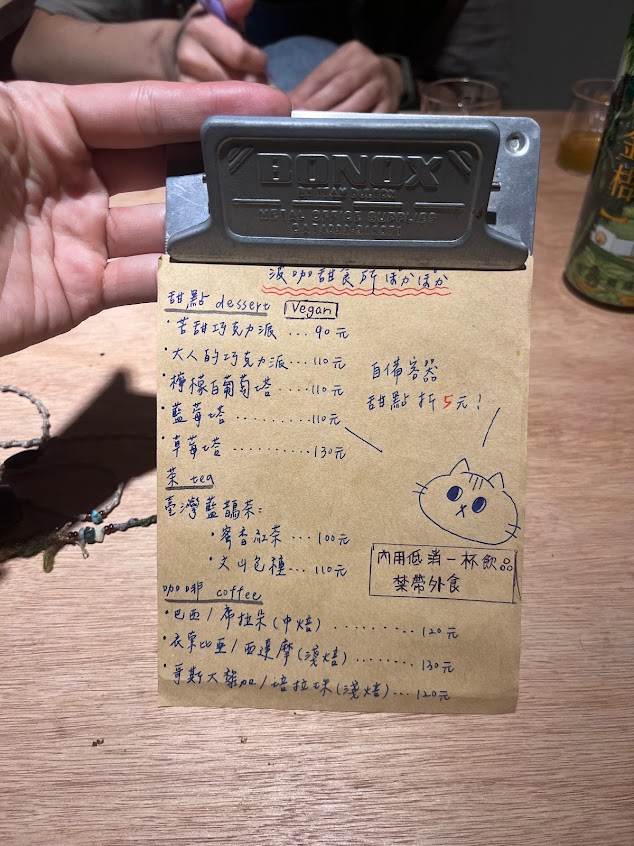 BONOX
METAL OFFICE SUPPLIES
波咖甜食所ぽかぽか
甜點 dessert Vegan
・苦甜巧克力派 ...90元
・大人的巧克力派...110元
・檸檬白葡萄塔 ...110元
・藍莓塔 .........110元
・草莓塔 .........130元
自備容器
甜點折5元!
茶 tea
臺灣藍鵲茶:
・蜜香紅茶 ...100元
・文山包種...110元
內用低消一杯飲品
禁帶外食
咖啡 coffee
・巴西/席拉朵(中焙) .........120元
・衣索比亞/西達摩(淺焙) ........130元
・哥斯大黎加/塔拉珠(淺焙)...120元